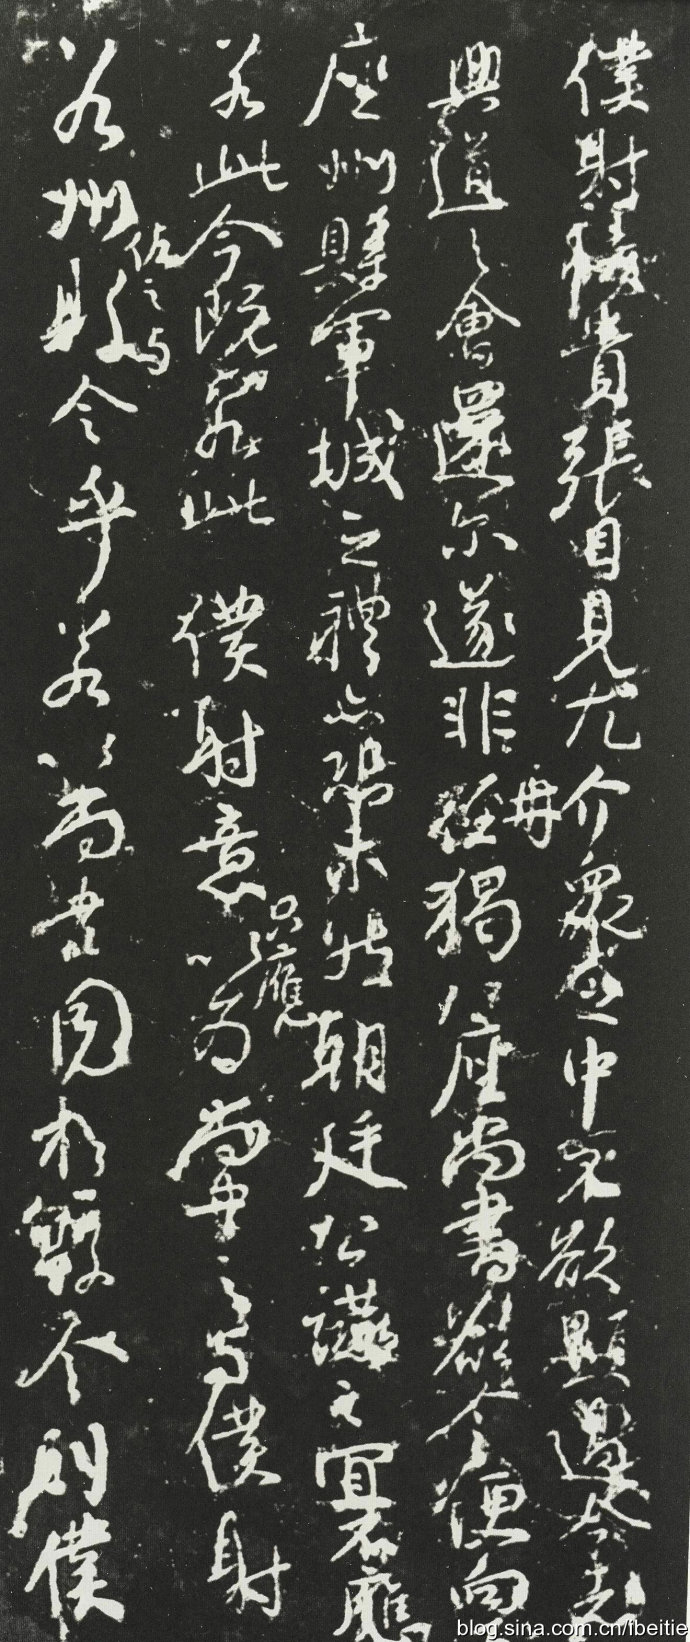 僕射恃貴張目見尤介衆之中不欲顯過今者
興道之會還爾遂非再猲八座尚書欲令便向
座州縣軍城之禮亦恐未然朝廷公讌之宜不應
若此今既若此僕射意只應以為尚書之與僕射
若州佐之與縣令乎若以尚書同於縣令則僕
blog.sina.com.cn/ibeitie